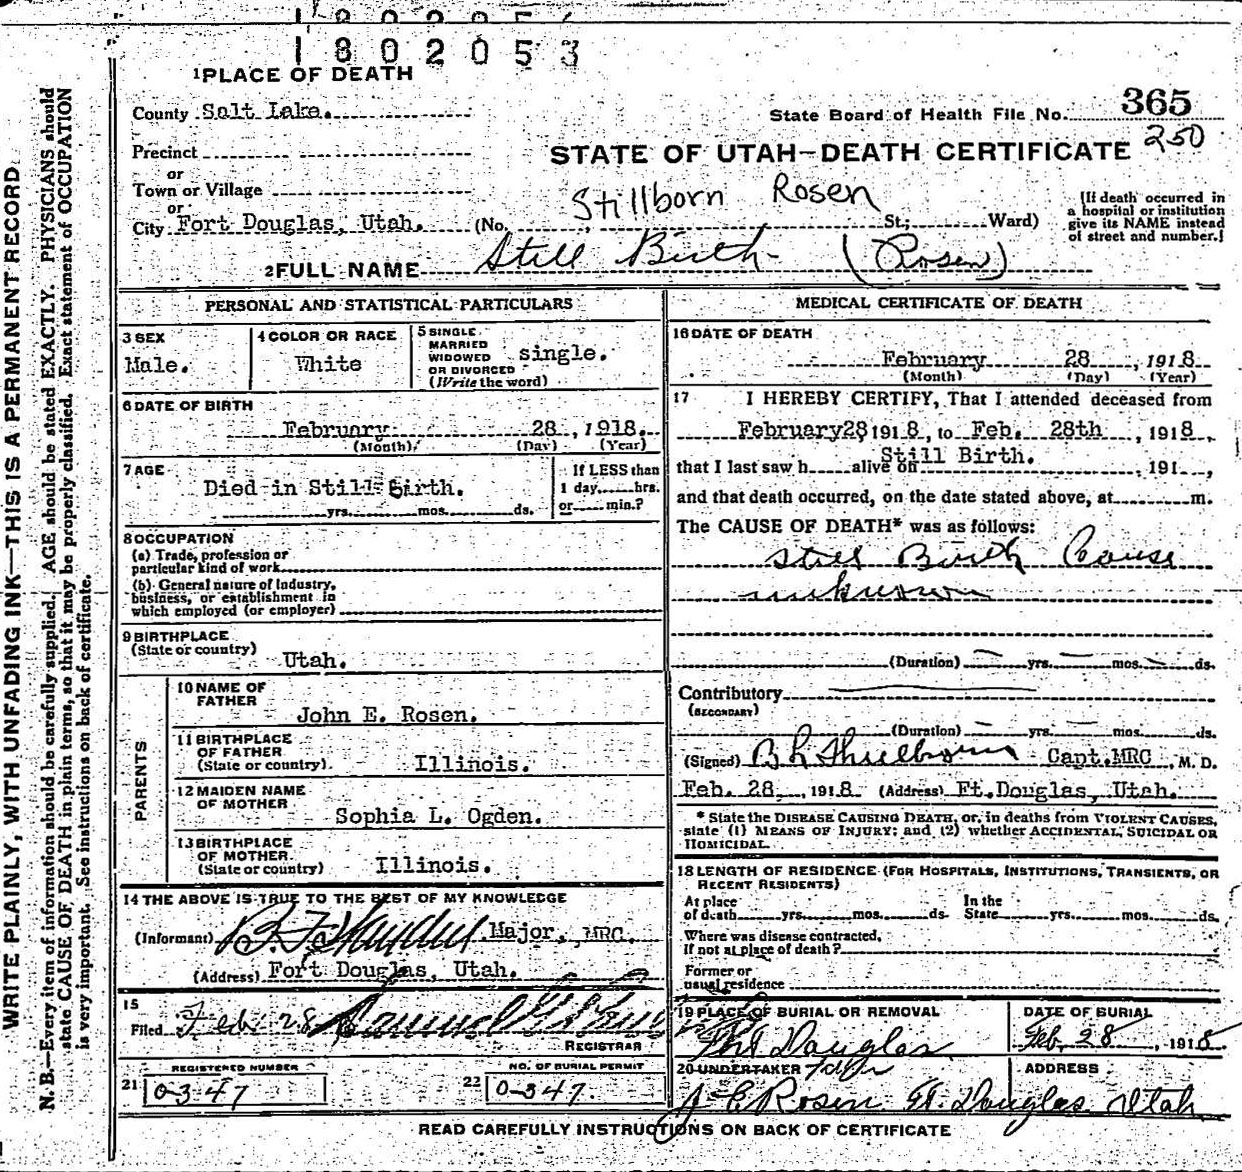 1802053
1 PLACE OF DEATH
County Salt Lake.
State Board of Health File No. 365
250
Precinct
STATE OF UTAH—DEATH CERTIFICATE
or
Town or Village
Stillborn Rosen
or
City Fort Douglas, Utah. (No. St; Ward)
(If death occurred in
a hospital or institution
give its NAME instead
of street and number.)
2 FULL NAME Still Birth (Rosen)
PERSONAL AND STATISTICAL PARTICULARS
3 SEX
Male.
4 COLOR OR RACE
White
5 SINGLE
MARRIED
WIDOWED
OR DIVORCED
(Write the word)
single.
6 DATE OF BIRTH
February 28, 1918.
(Month) (Day) (Year)
7 AGE
Died in Still Birth.
yrs. mos. ds.
If LESS than
1 day hrs.
or min.?
8 OCCUPATION
(a) Trade, profession or
particular kind of work
(b) General nature of Industry,
business, or establishment in
which employed (or employer)
9 BIRTHPLACE
(State or country)
Utah.
PARENTS
10 NAME OF
FATHER
John E. Rosen.
11 BIRTHPLACE
OF FATHER
(State or country)
Illinois.
12 MAIDEN NAME
OF MOTHER
Sophia L. Ogden.
13 BIRTHPLACE
OF MOTHER
(State or country)
Illinois.
14 THE ABOVE IS TRUE TO THE BEST OF MY KNOWLEDGE
(Informant) Major, MRC.
(Address) Fort Douglas, Utah.
15
Filed Feb 28
REGISTRAR
REGISTERED NUMBER
21 0347
NO. OF BURIAL PERMIT
22 0-347.
MEDICAL CERTIFICATE OF DEATH
16 DATE OF DEATH
February 28, 1918
(Month) (Day) (Year)
17 I HEREBY CERTIFY, That I attended deceased from
February 28 1918, to Feb. 28th, 1918,
Still Birth.
that I last saw h alive on , 191 ,
and that death occurred, on the date stated above, at m.
The CAUSE OF DEATH* was as follows:
Still Birth Cause
unknown
(Duration) yrs. mos. ds.
Contributory
(SECONDARY)
(Duration) yrs. mos. ds.
(Signed) Capt. MRC, M. D.
Feb. 28, 1918 (Address) Ft. Douglas, Utah.
* State the DISEASE CAUSING DEATH, or, in deaths from VIOLENT CAUSES,
state (1) MEANS OF INJURY; and (2) whether ACCIDENTAL, SUICIDAL OR
HOMICIDAL.
18 LENGTH OF RESIDENCE (FOR HOSPITALS, INSTITUTIONS, TRANSIENTS, OR
RECENT RESIDENTS)
At place
of death yrs. mos. ds.
In the
State yrs. mos. ds.
Where was disease contracted,
If not at place of death?
Former or
usual residence
19 PLACE OF BURIAL OR REMOVAL
Fort Douglas
DATE OF BURIAL
Feb. 28, 1918
20 UNDERTAKER
ADDRESS
J E Rosen Ft. Douglas Utah
READ CAREFULLY INSTRUCTIONS ON BACK OF CERTIFICATE
WRITE PLAINLY, WITH UNFADING INK—THIS IS A PERMANENT RECORD
N. B.—Every item of information should be carefully supplied. AGE should be stated EXACTLY. PHYSICIANS should
state CAUSE OF DEATH in plain terms, so that it may be properly classified. Exact statement of OCCUPATION
is very important. See instructions on back of certificate.